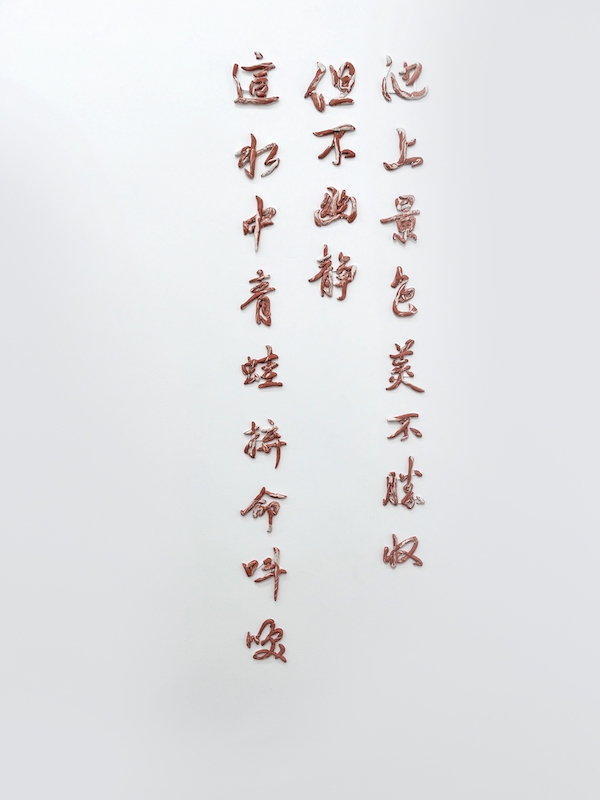 池上景色美不勝收
但不幽靜
這水中青蛙拚命叫喚